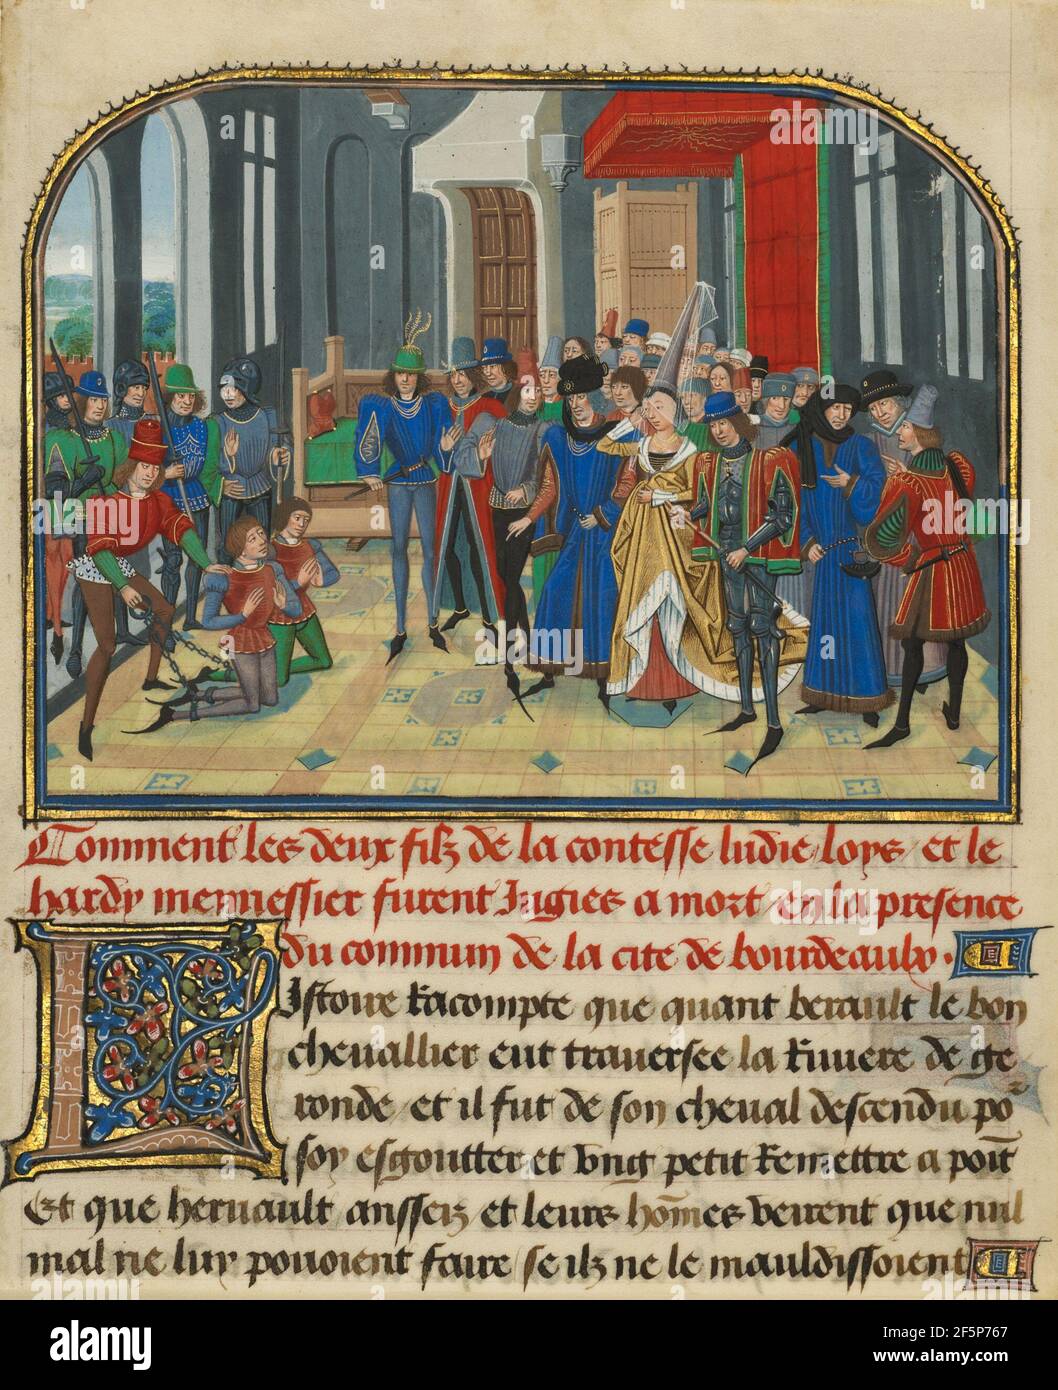 Comment les deux filz de la contesse ludie loys et le
hardy mennessier furent Jugies a mort en la presence
du commun de la cite de bourdeaulx .
Istoire Racompte que quant berault le bon
chevallier eut traversee la Riviere de ge
ronde et il fut de son cheval descendu po
soy esgoutter et ung petit Remettre a poit
Et que heruault ansseiz et leurs hōmes veirent que nul
mal ne luy pouoient faire se ilz ne le mauldissoient
alamy
Image ID: 2F5P767
www.alamy.com